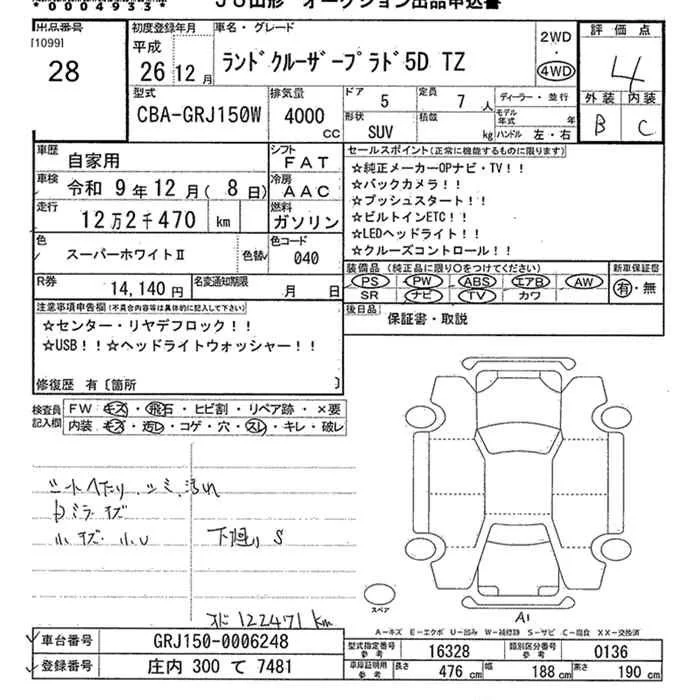 *00004933*
JU山形 オークション出品申込書
出品番号 [1099] 28
初度登録年月 平成 26年 12月
車名・グレード ランドクルーザープラド5D TZ
2WD・4WD
評価点 4
外装 B 内装 C
型式 CBA-GRJ150W
排気量 4000 CC
ドア 5
定員 7人
形状 SUV
積載 kg
ディーラー・並行
モデル年式 年
ハンドル 左・右
車歴 自家用
シフト FAT
車検 令和 9年12月( 8日)
冷房 AAC
走行 12万2千470 km
燃料 ガソリン
色 スーパーホワイトⅡ 色替
色コード 040
R券 14,140円
名変通知期限 月 日
セールスポイント(正常に機能するものに限ります)
☆純正メーカーOPナビ・TV!!
☆バックカメラ!!
☆プッシュスタート!!
☆ビルトインETC!!
☆LEDヘッドライト!!
☆クルーズコントロール!!
装備品(純正品に限り○をつけてください)
PS PW ABS エアB AW
SR ナビ TV カワ
新車保証書 有・無
後日品 保証書・取説
注意事項申告欄(不具合内容等は具体的に記入して下さい)
☆センター・リヤデフロック!!
☆USB!!☆ヘッドライトウォッシャー!!
修復歴 有〔箇所 〕
検査員記入欄
FW キズ・飛石・ヒビ割・リペア跡・×要
内装 キズ・汚レ・コゲ・穴・スレ・キレ・破レ
シートへたり、シミ、汚れ
下廻り S
122471 km
スペア
A1
A-キズ E-エクボ U-凹み W-補修跡 S-サビ C-腐食 XX-交換済
車台番号 GRJ150-0006248
登録番号 庄内 300 て 7481
型式指定番号 参考 16328
類別区分番号 参考 0136
車庫証明用 参考 長さ 476 cm 幅 188 cm 高さ 190 cm